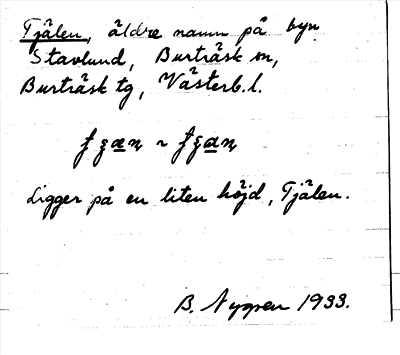 Tjälen, äldre namn på byn
Stavlund, Burträsk sn,
Burträsk tg, Västerb.l.
Ligger på en liten höjd, Tjälen.
B. Nygren 1933.